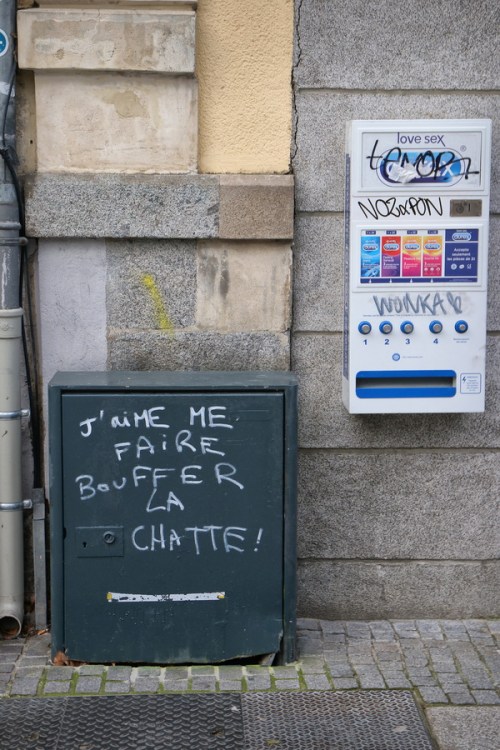 J'AiME ME
FAiRE
BOUFFER
LA
CHATTE!
love sex
NOZaPON
WONKA
1 2 3 4